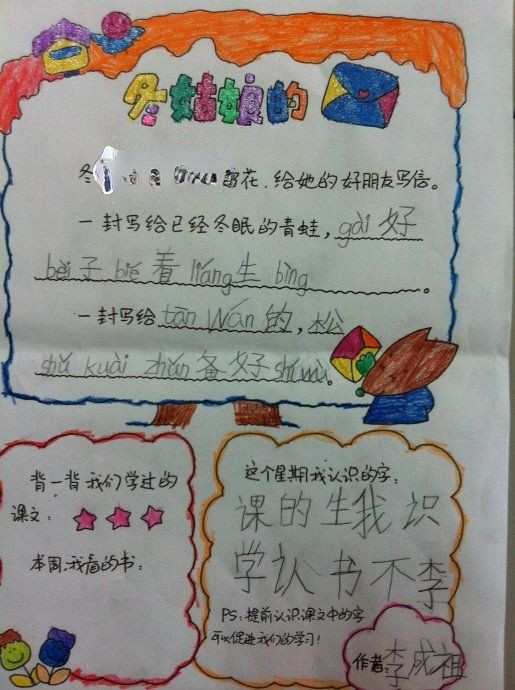 冬姑娘的
冬 雪花,给她的好朋友写信。
一封写给已经冬眠的青蛙, gài 好
bèi 子 bié 着 liáng 生 bìng 。
一封写给 tān Wán 的,松
shǔ kuài zhǔn 备 好 shí wù。
背一背我们学过的
课文:
本周,我看的书:
这个星期我认识的字:
课的生我识
学认书不李
PS:提前认识课文中的字
可以促进我们的学习!
作者 李成祖